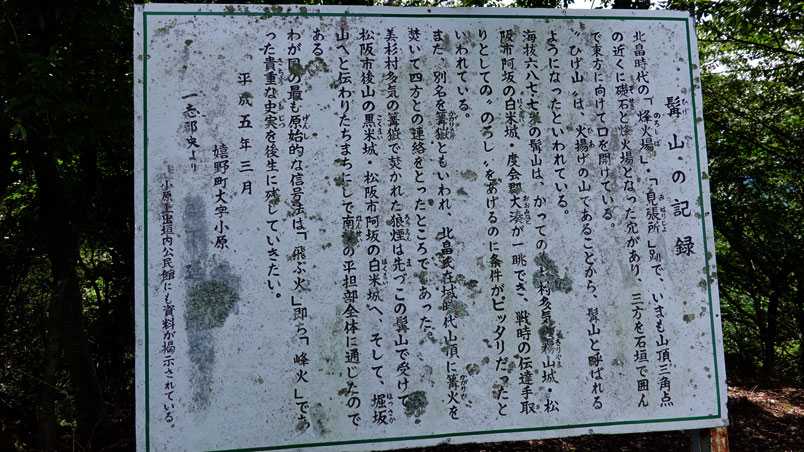 髯山の記録
北畠時代の「烽火場」・「見張所」跡で、いまも山頂三角点
の近くに礎石と烽火場となった穴があり、三方を石垣で囲ん
で東方に向けて口を開けている。
〝ひげ山〟は、火揚げの山であることから、髯山と呼ばれる
ようになったといわれている。
海抜六八七・七米の髯山は、かっての 村多気 霧山城・松
阪市阿坂の白米城・度会郡大湊が一眺でき、戦時の伝達手取
りとしての〝のろし〟をあげるのに条件がピッタリだったと
いわれている。
また、別名を篝嶽ともいわれ、北畠氏在城時代山頂に篝火を
焚いて四方との連絡をとったところであった。
美杉村多気の篝嶽で焚かれた狼煙は先づこの髯山で受けて
松阪市後山の黒米城・松阪市阿坂の白米城へ、そして、堀坂
山へと伝わりたちまちにして南勢の平担部全体に通じたので
ある。
わが国の最も原始的な信号法は「飛ぶ火」即ち「峰火」であ
った貴重な史実を後生に残していきたい。
平成五年三月
嬉野町大字小原
一志郡史より
小原 垣内公民館にも資料が掲示されている。